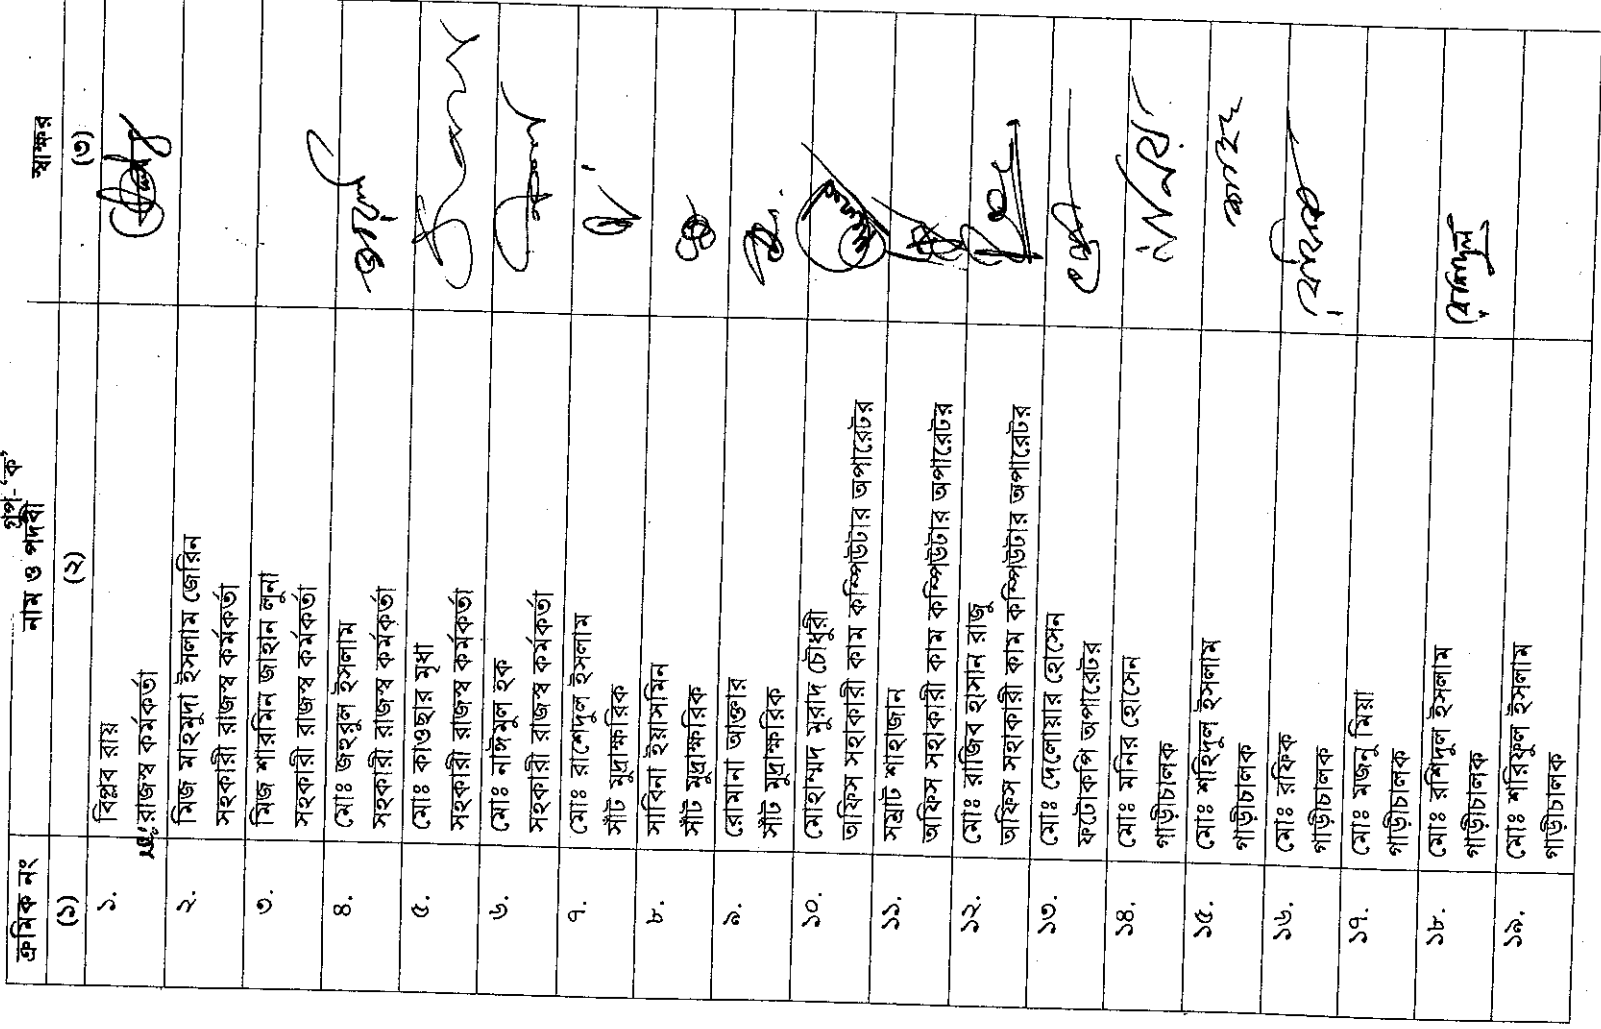 গ্রুপ-'ক'
ক্রমিক নং নাম ও পদবী স্বাক্ষর
(১) (২) (৩)
১. বিপ্লব রায়
রাজস্ব কর্মকর্তা
২. মিজ মাহমুদা ইসলাম জেরিন
সহকারী রাজস্ব কর্মকর্তা
৩. মিজ শারমিন জাহান লুনা
সহকারী রাজস্ব কর্মকর্তা
৪. মোঃ জহুরুল ইসলাম
সহকারী রাজস্ব কর্মকর্তা
৫. মোঃ কাওছার মৃধা
সহকারী রাজস্ব কর্মকর্তা
৬. মোঃ নাঈমুল হক
সহকারী রাজস্ব কর্মকর্তা
৭. মোঃ রাশেদুল ইসলাম
সাঁট মুদ্রাক্ষরিক
৮. সাবিনা ইয়াসমিন
সাঁট মুদ্রাক্ষরিক
৯. রোমানা আক্তার
সাঁট মুদ্রাক্ষরিক
১০. মোহাম্মদ মুরাদ চৌধুরী
অফিস সহাকারী কাম কম্পিউটার অপারেটর
১১. সম্রাট শাহাজান
অফিস সহাকারী কাম কম্পিউটার অপারেটর
১২. মোঃ রাজিব হাসান রাজু
অফিস সহাকারী কাম কম্পিউটার অপারেটর
১৩. মোঃ দেলোয়ার হোসেন
ফটোকপি অপারেটর
১৪. মোঃ মনির হোসেন
গাড়ীচালক
১৫. মোঃ শহিদুল ইসলাম
গাড়ীচালক
১৬. মোঃ রফিক
গাড়ীচালক
১৭. মোঃ মজনু মিয়া
গাড়ীচালক
১৮. মোঃ রশিদুল ইসলাম
গাড়ীচালক
১৯. মোঃ শরিফুল ইসলাম
গাড়ীচালক